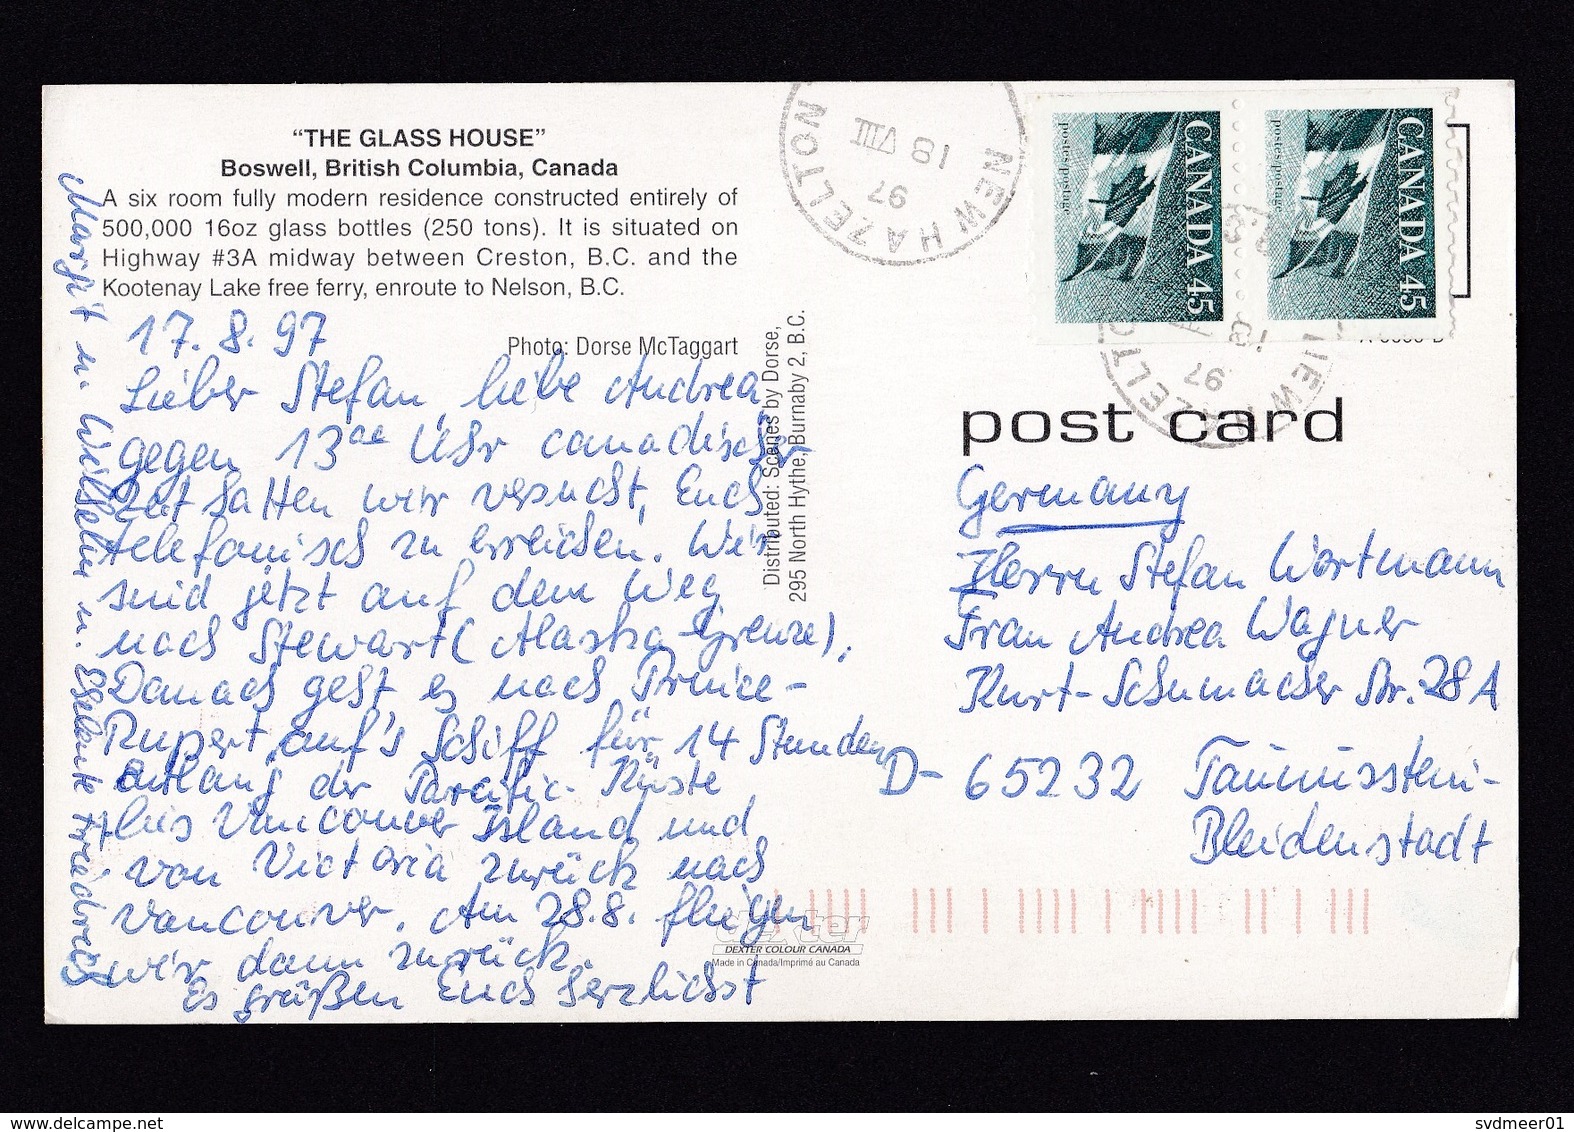 “THE GLASS HOUSE”
Boswell, British Columbia, Canada
A six room fully modern residence constructed entirely of
500,000 16oz glass bottles (250 tons). It is situated on
Highway #3A midway between Creston, B.C. and the
Kootenay Lake free ferry, enroute to Nelson, B.C.
Photo: Dorse McTaggart
17.8.97
Lieber Stefan, liebe Andrea
gegen 13 Uhr canadischer
Zeit hatten wir versucht, Euch
telefonisch zu erreichen. Wir
sind jetzt auf dem Weg
nach Stewart (Alaska-Grenze).
Danach geht es nach Prince-
Rupert, auf's Schiff für 14 Stunden
entlang der Pacific-Küste
bis Vancouver Island und
von Victoria zurück nach
Vancouver. Am 28.8. fliegen
wir dann zurück.
Es grüßen Euch herzlichst
Margit u. Wilhelm u.
Distributed: Scenes by Dorse,
295 North Hythe, Burnaby 2, B.C.
NEW HAZELTON
18 VIII
97
CANADA 45
postes/postage
CANADA 45
postes/postage
NEW HAZELTON
97
post card
Germany
Herrn Stefan Wortmann
Frau Andrea Wagner
Kurt-Schumacher Str. 28A
D-65232 Taunusstein-
Bleidenstadt
dexter
DEXTER COLOUR CANADA
Made in Canada/Imprimé au Canada
www.delcampe.net
svdmeer01